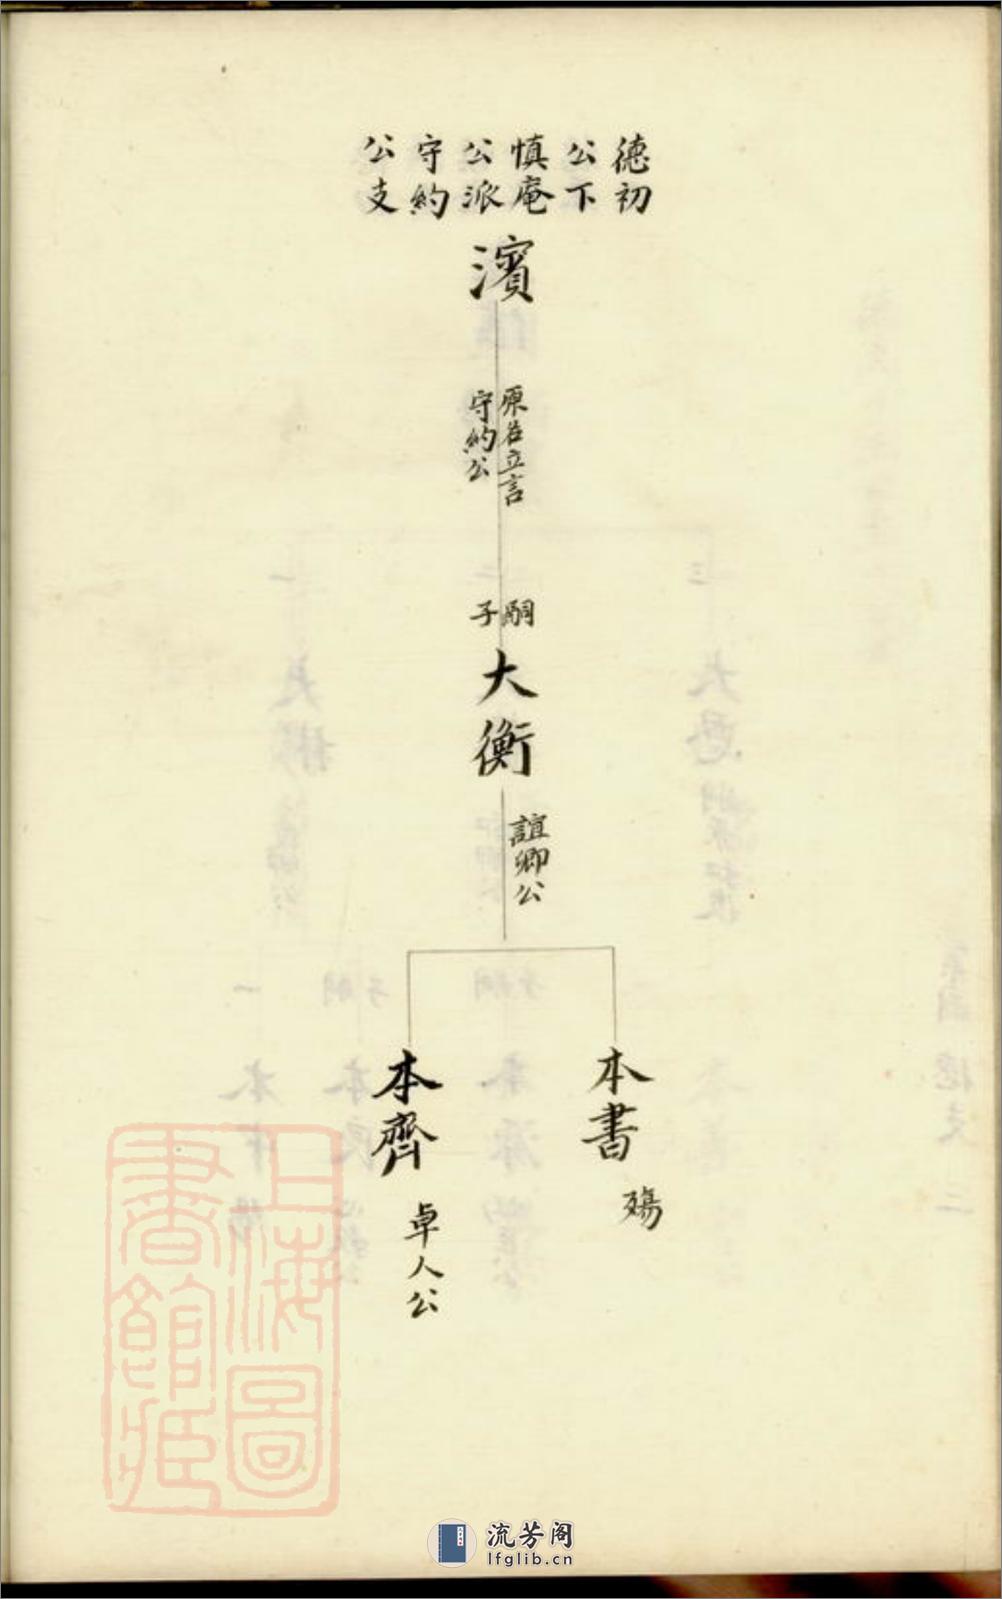 德初
公下
慎庵
公派
守約
公支
濱
原名立言
守約公
嗣子
大衡
誼卿公
本書
殤
本齊
卓人公
上海圖
書館藏
流芳阁
lfglib.cn